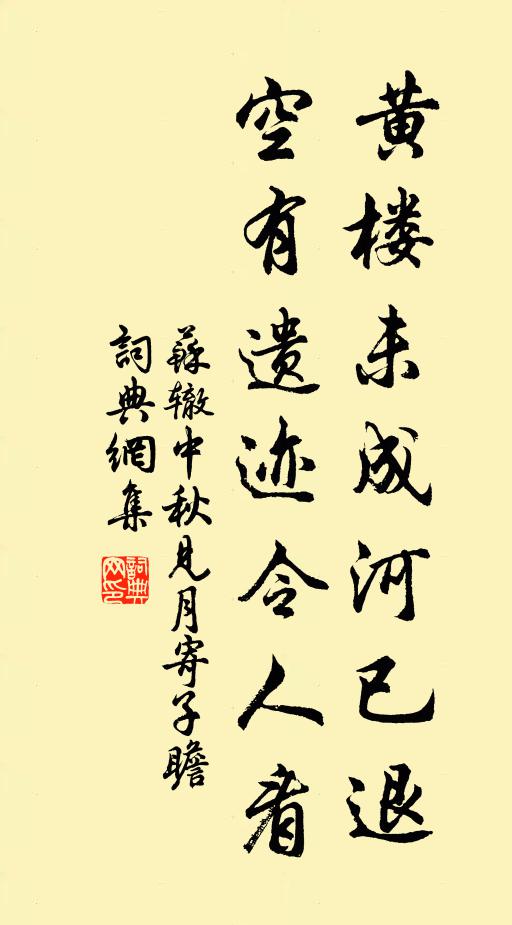 黄楼未成河已退
空有遗迹令人看
蘇辙中秋见月寄子瞻
詞典網集
詞典網印